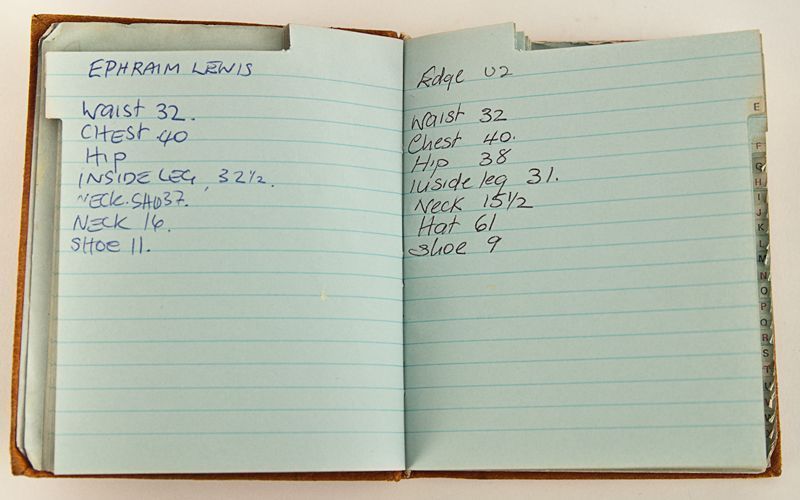 EPHRAIM LEWIS
Waist 32.
CHEST 40
Hip
INSIDE LEG, 32½.
NECK. SHO 37.
NECK 16.
SHOE 11.
Edge U2
Waist 32
Chest 40.
Hip 38
inside leg 31.
Neck 15½
Hat 61
shoe 9
E
F
G
H
I
J
K
L
M
N
O
P
Q
R
S
T